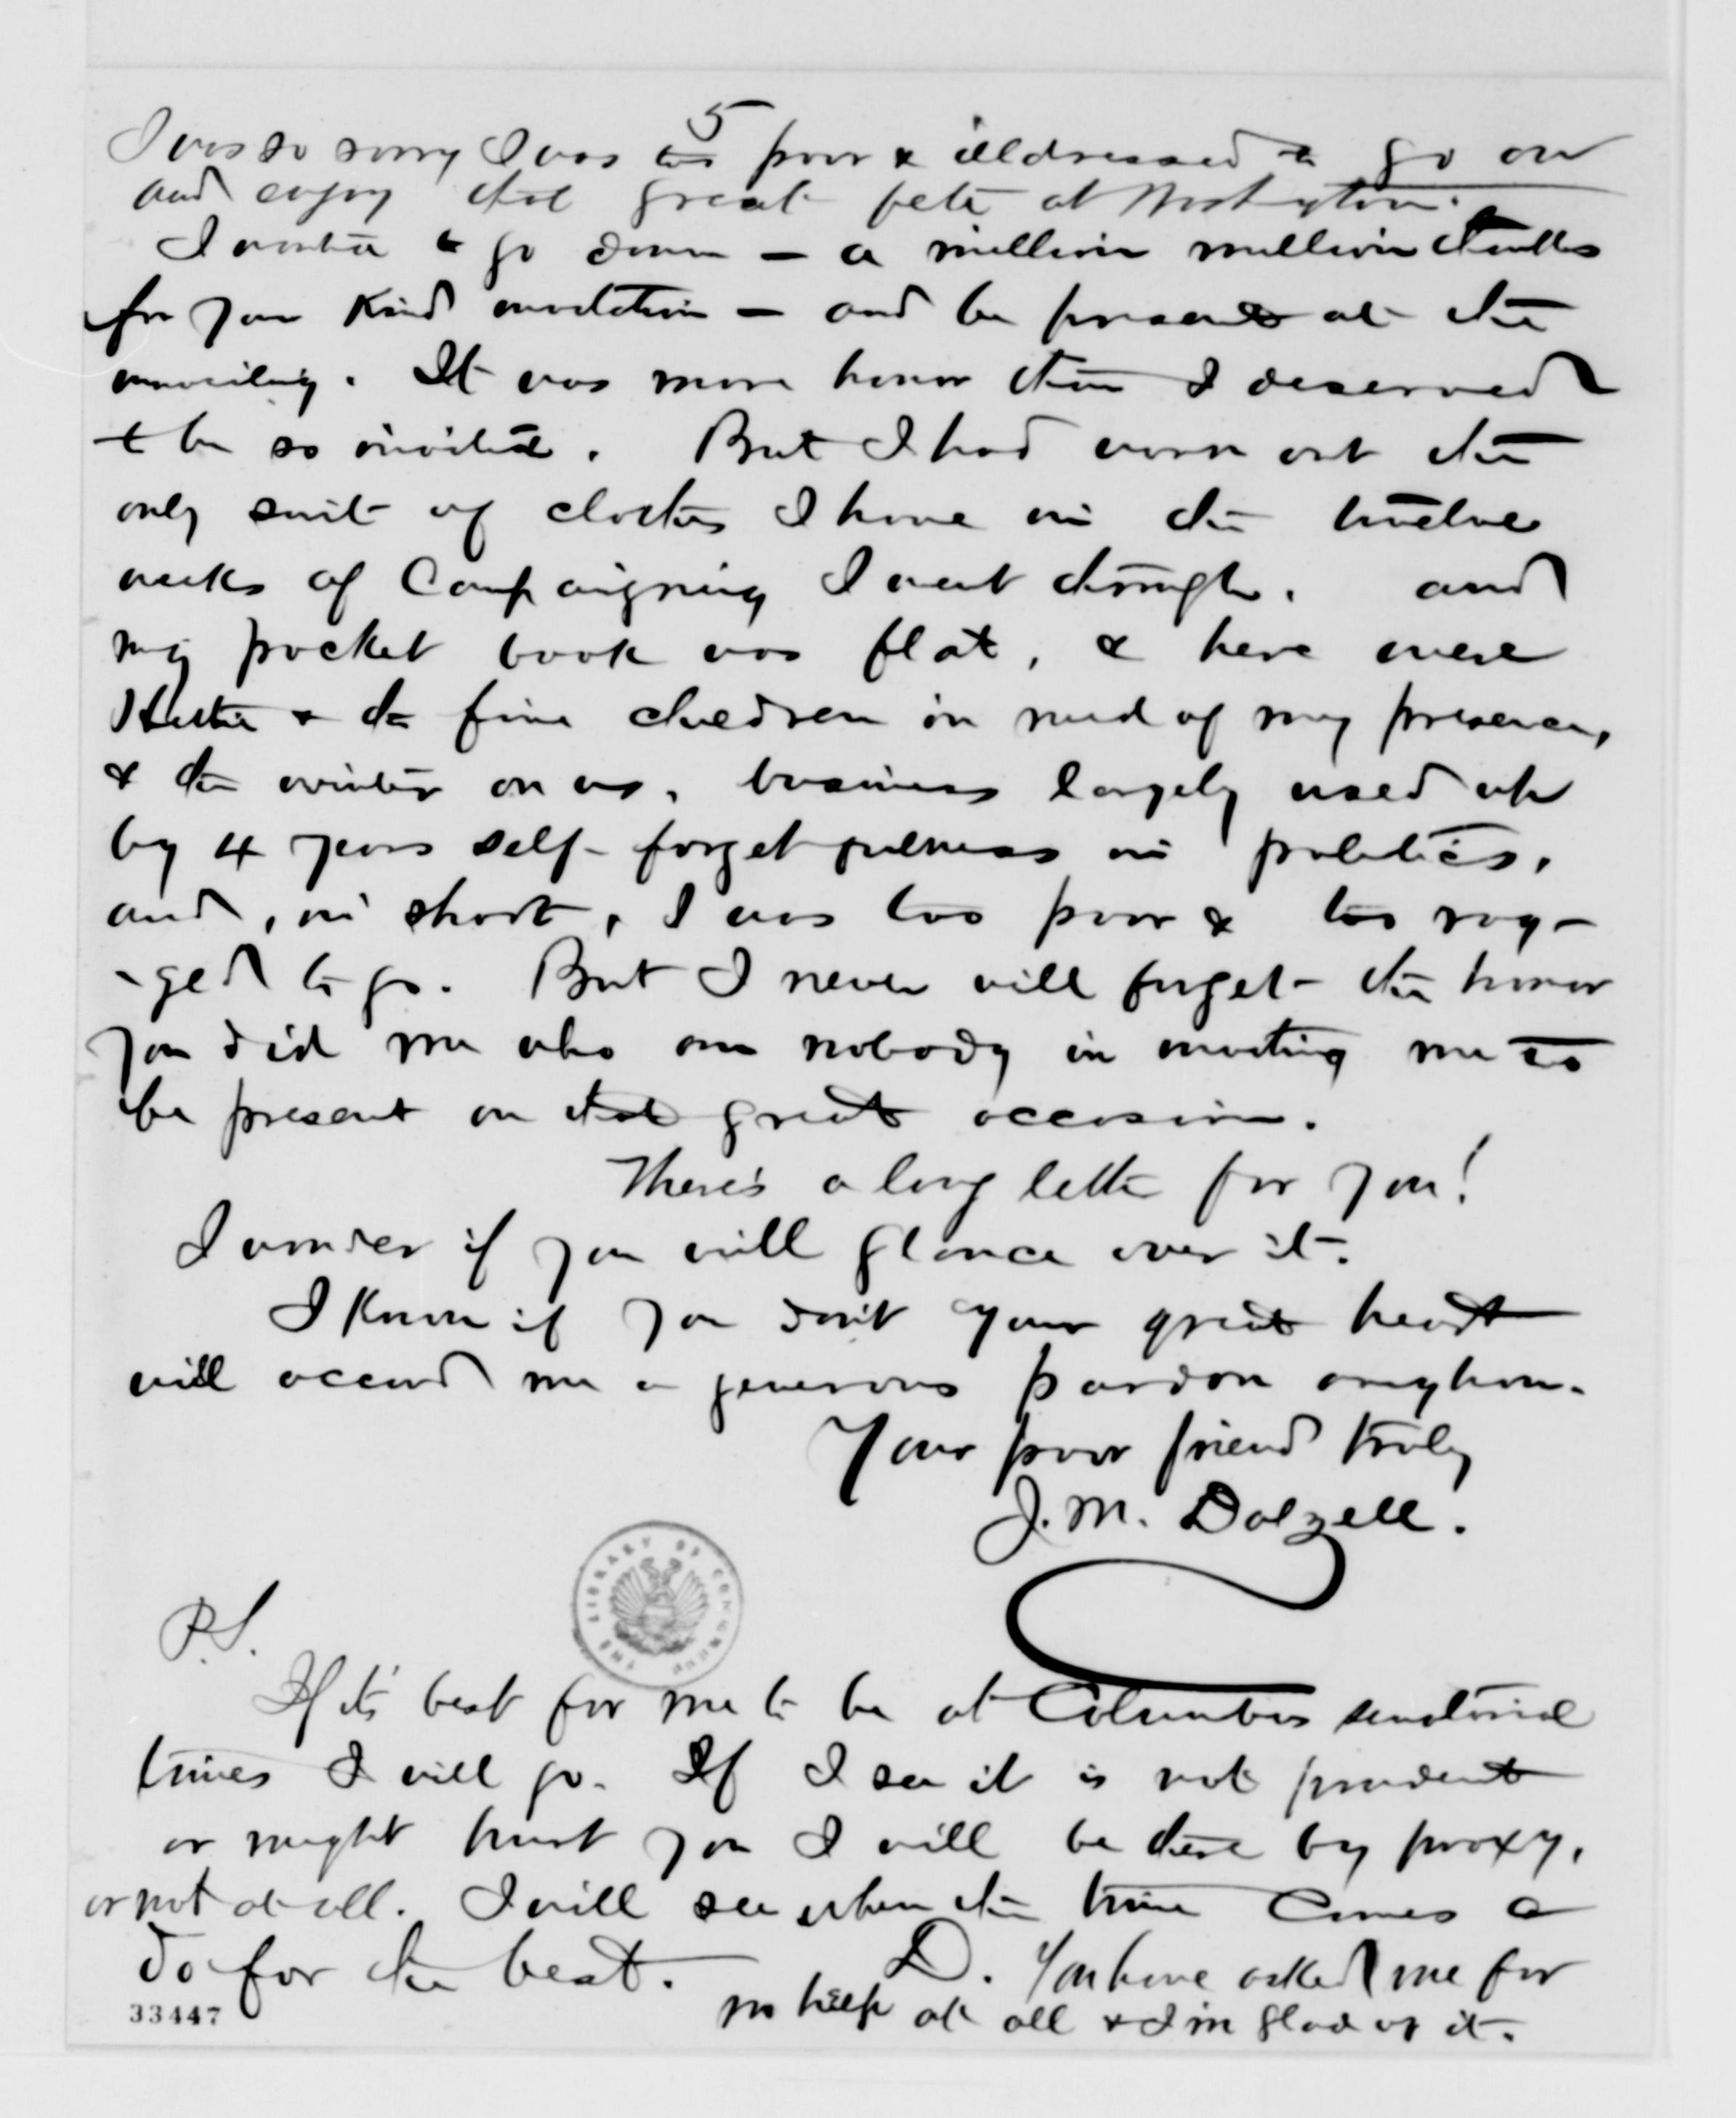 5
I was so sorry I was too poor & illdressed to go on
and enjoy that great fete at Washington.
I wanted to go down — a million million thanks
for your kind invitation — and be present at the
unveiling. It was more honor than I deserved
to be so invited. But I had worn out the
only suit of clothes I have in the twelve
weeks of Campaigning I went through. and
my pocket book was flat, & here were
Hettie & the five children in need of my presence,
& the winter on us, business largely used up
by 4 years self-forgetfulness in politics,
and, in short, I was too poor & too rag-
-ged to go. But I never will forget the honor
you did me who am nobody in inviting me to
be present on that great occasion.
There's a long letter for you!
I wonder if you will glance over it.
I know if you don't your great heart
will accord me a generous pardon anyhow.
Your poor friend truly
J. M. Dalzell.
THE LIBRARY OF CONGRESS
P.S.
If its best for me to be at Columbus senatorial
times I will go. If I see it is not prudent
or might hurt you I will be there by proxy,
or not at all. I will see when the time comes &
do for the best. D. You have asked me for
no help at all & I'm glad of it.
33447